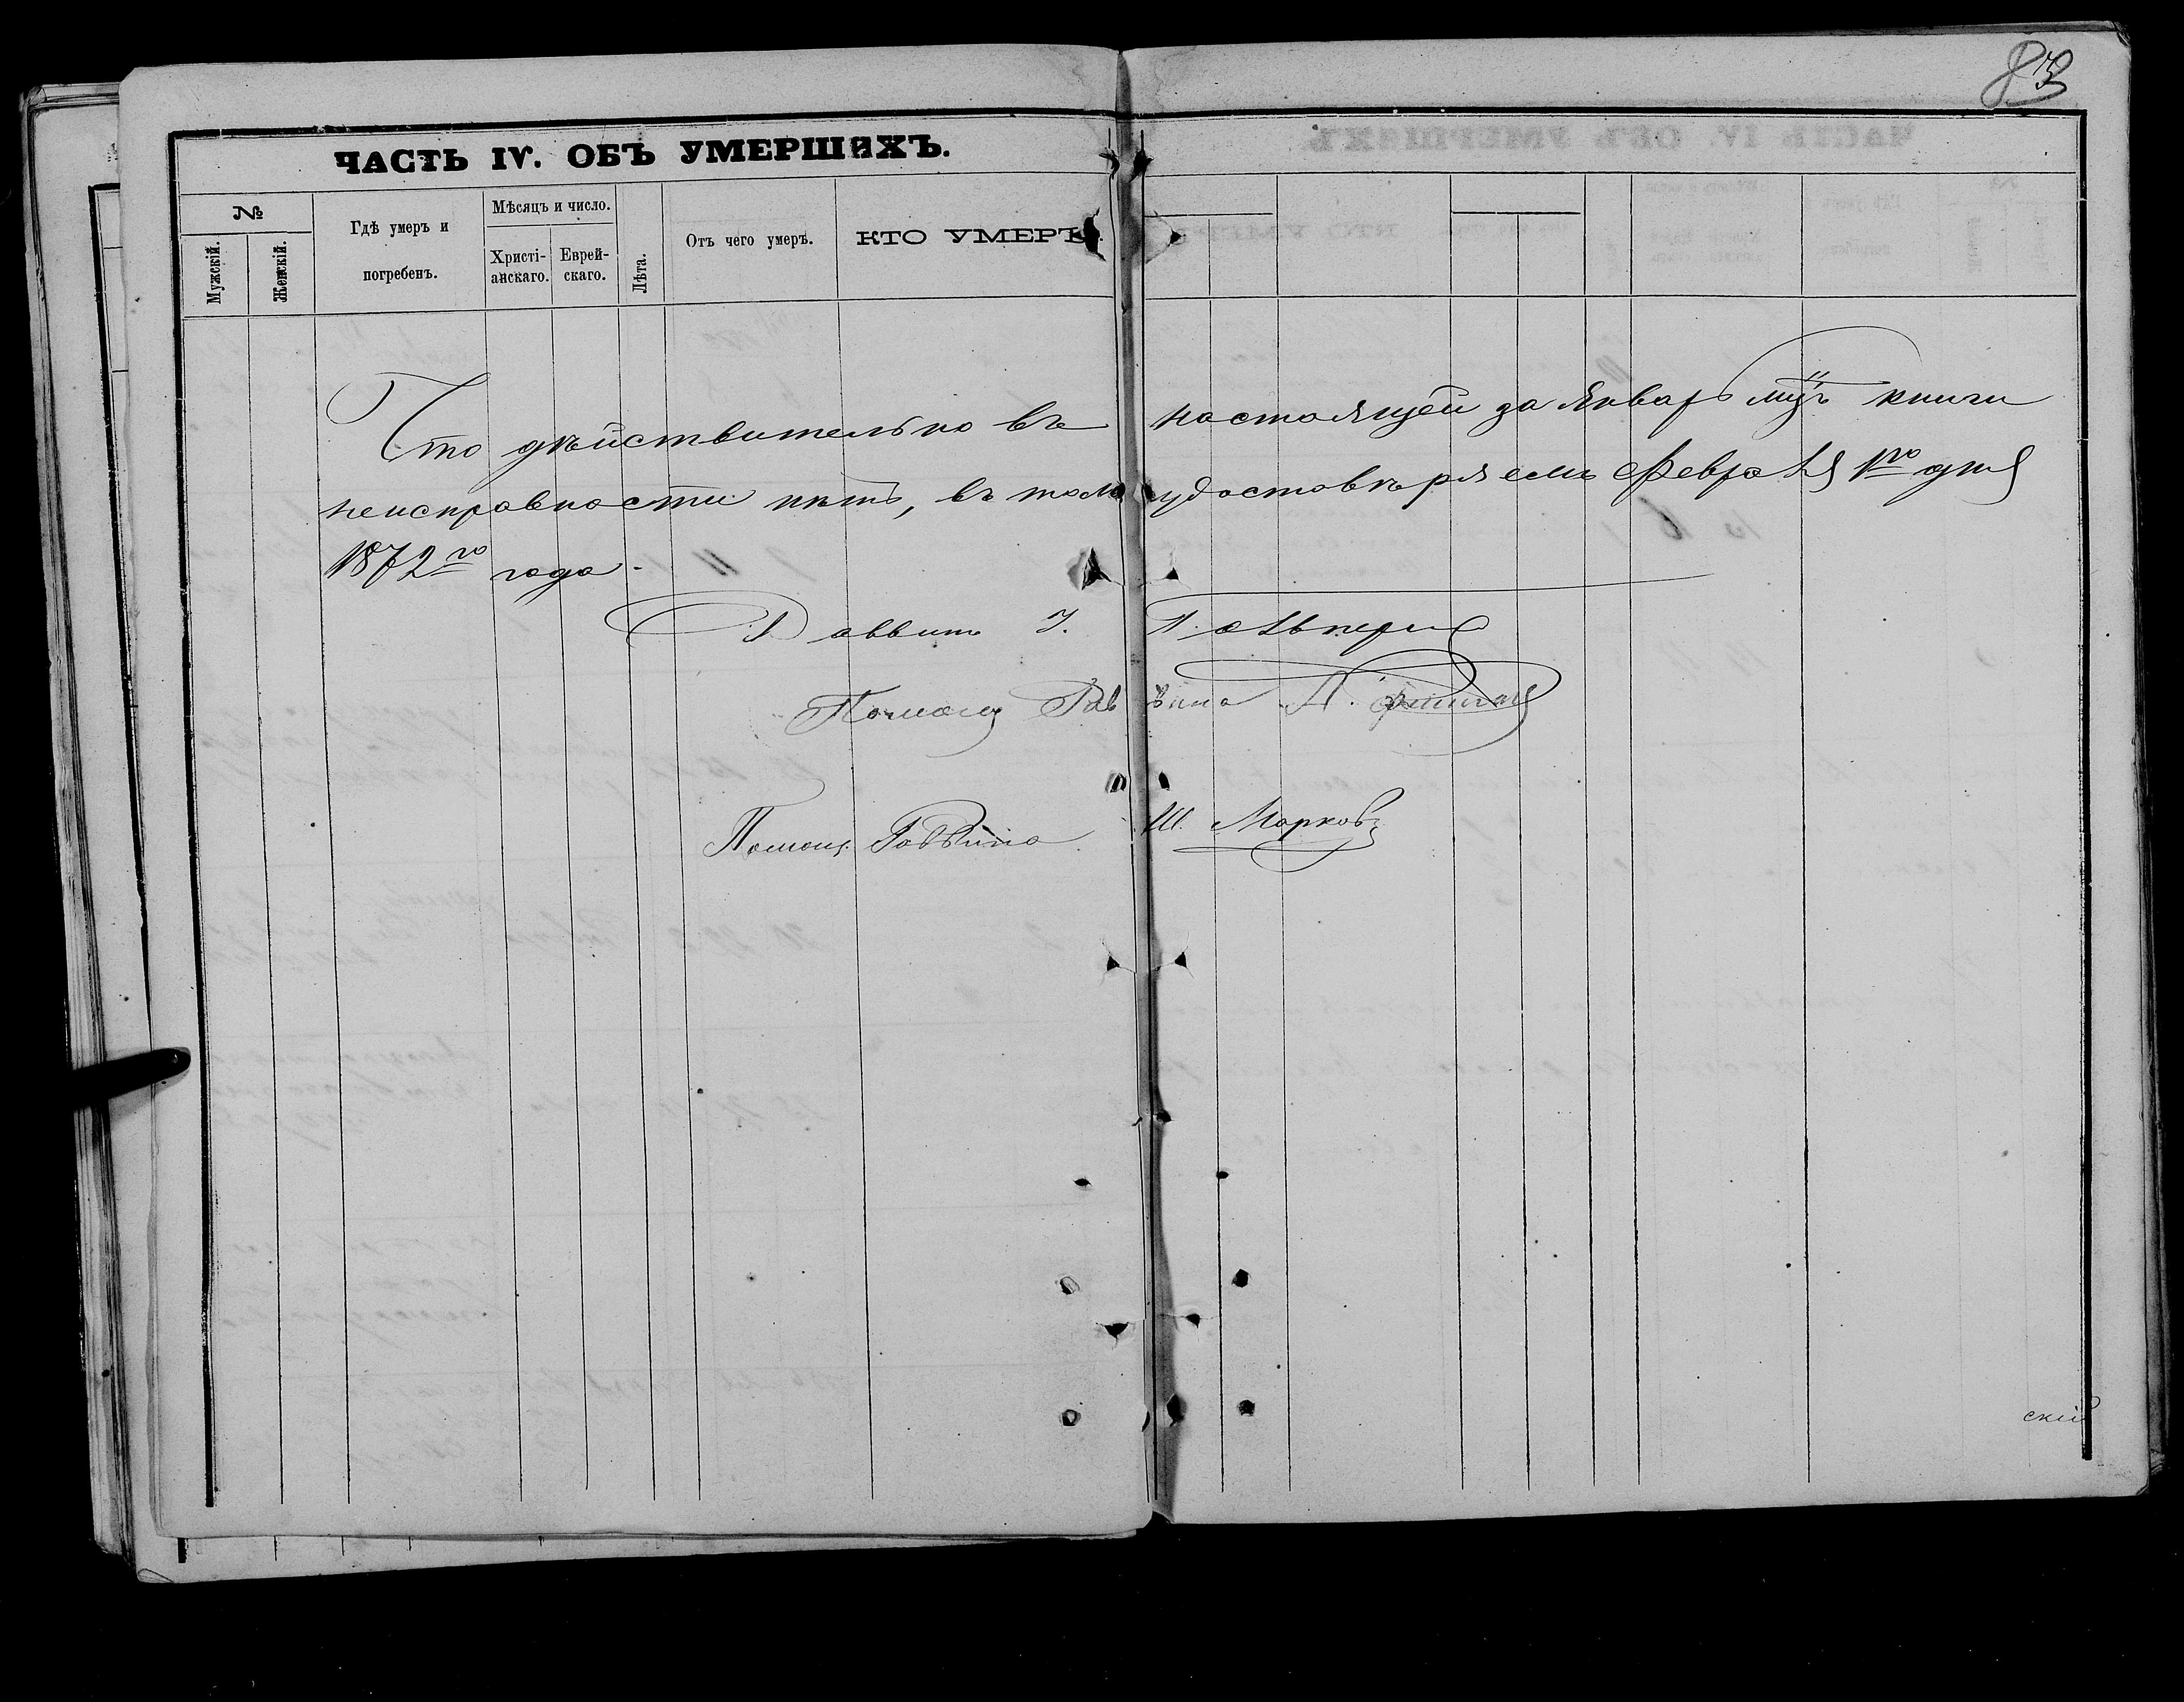 83
ЧАСТЬ IV. ОБЪ УМЕРШИХЪ.
№
Мужскій.
Женскій.
Гдѣ умеръ и
погребенъ.
Мѣсяцъ и число.
Христі-
анскаго.
Еврей-
скаго.
Лѣта.
Отъ чего умеръ.
КТО УМЕРЪ.
Что дѣйствительно въ настоящей за Январь мцъ книги
неисправности нѣтъ, въ томъ удостовѣряемъ Февраля 1го дня
1872го года.
Раввинъ І. Гальперинъ
Помощ Раввина
Помощ. Раввина Ш. Марковъ
скій